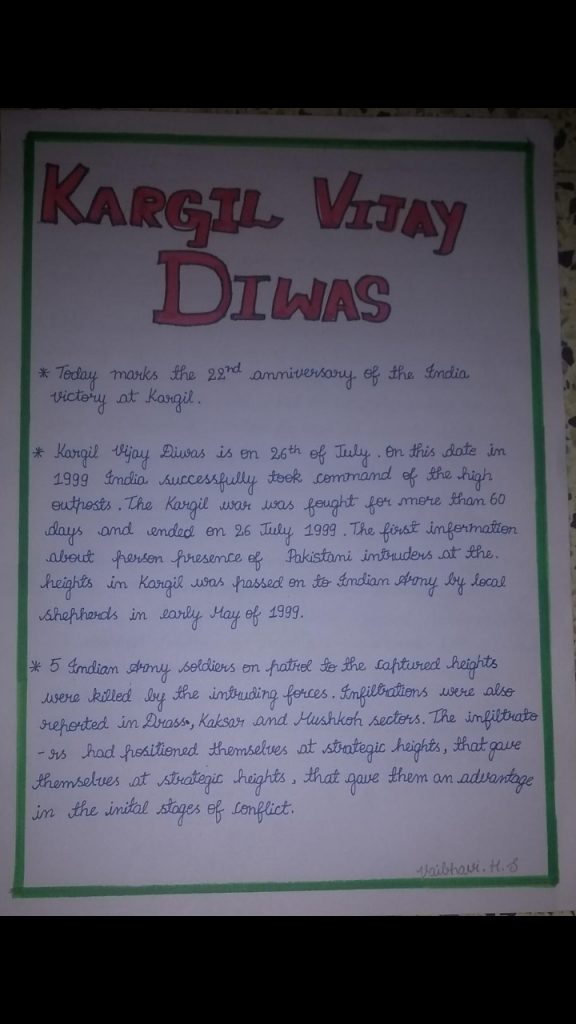 KARGIL VIJAY
DIWAS
* Today marks the 22nd anniversary of the India
victory at Kargil.
* Kargil Vijay Diwas is on 26th of July. On this date in
1999 India successfully took command of the high
outposts. The Kargil war was fought for more than 60
days and ended on 26 July 1999. The first information
about person presence of Pakistani intruders at the.
heights in Kargil was passed on to Indian Army by local
shepherds in early May of 1999.
* 5 Indian Army soldiers on patrol to the captured heights
were killed by the intruding forces. Infiltrations were also
reported in Drass, Kaksar and Mushkoh sectors. The infiltrato
-rs had positioned themselves at strategic heights, that gave
themselves at strategic heights, that gave them an advantage
in the inital stages of conflict.
Vaibhavi. H. S